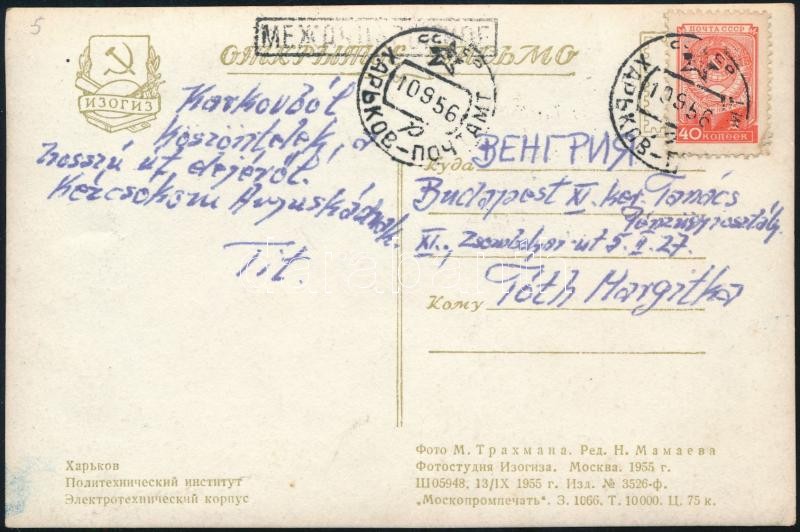 5
МЕЖДУНАРОДНОЕ
ОТКРЫТОЕ ПИСЬМО
ИЗОГИЗ
ПОЧТА СССР
40 КОПЕЕК
ХАРЬКОВ-ПОЧТАМТ
10956
ХАРЬКОВ-П
10956
Karkovból
köszöntelek, a
hosszú út elejéről.
Kézcsókom Anyuskádnak.
Tit.
Куда ВЕНГРИЯ
Budapest XI. ker. Tanács
Pénzügyosztály
XI., Zsombolyai út 5. II. 27.
Кому Tóth Margitka
Харьков
Политехнический институт
Электротехнический корпус
Фото М. Трахмана. Ред. Н. Мамаева
Фотостудия Изогиза. Москва. 1955 г.
Ш05948, 13/IX 1955 г. Изд. № 3526-ф.
„Москопромпечать“. З. 1066. Т. 10000. Ц. 75 к.